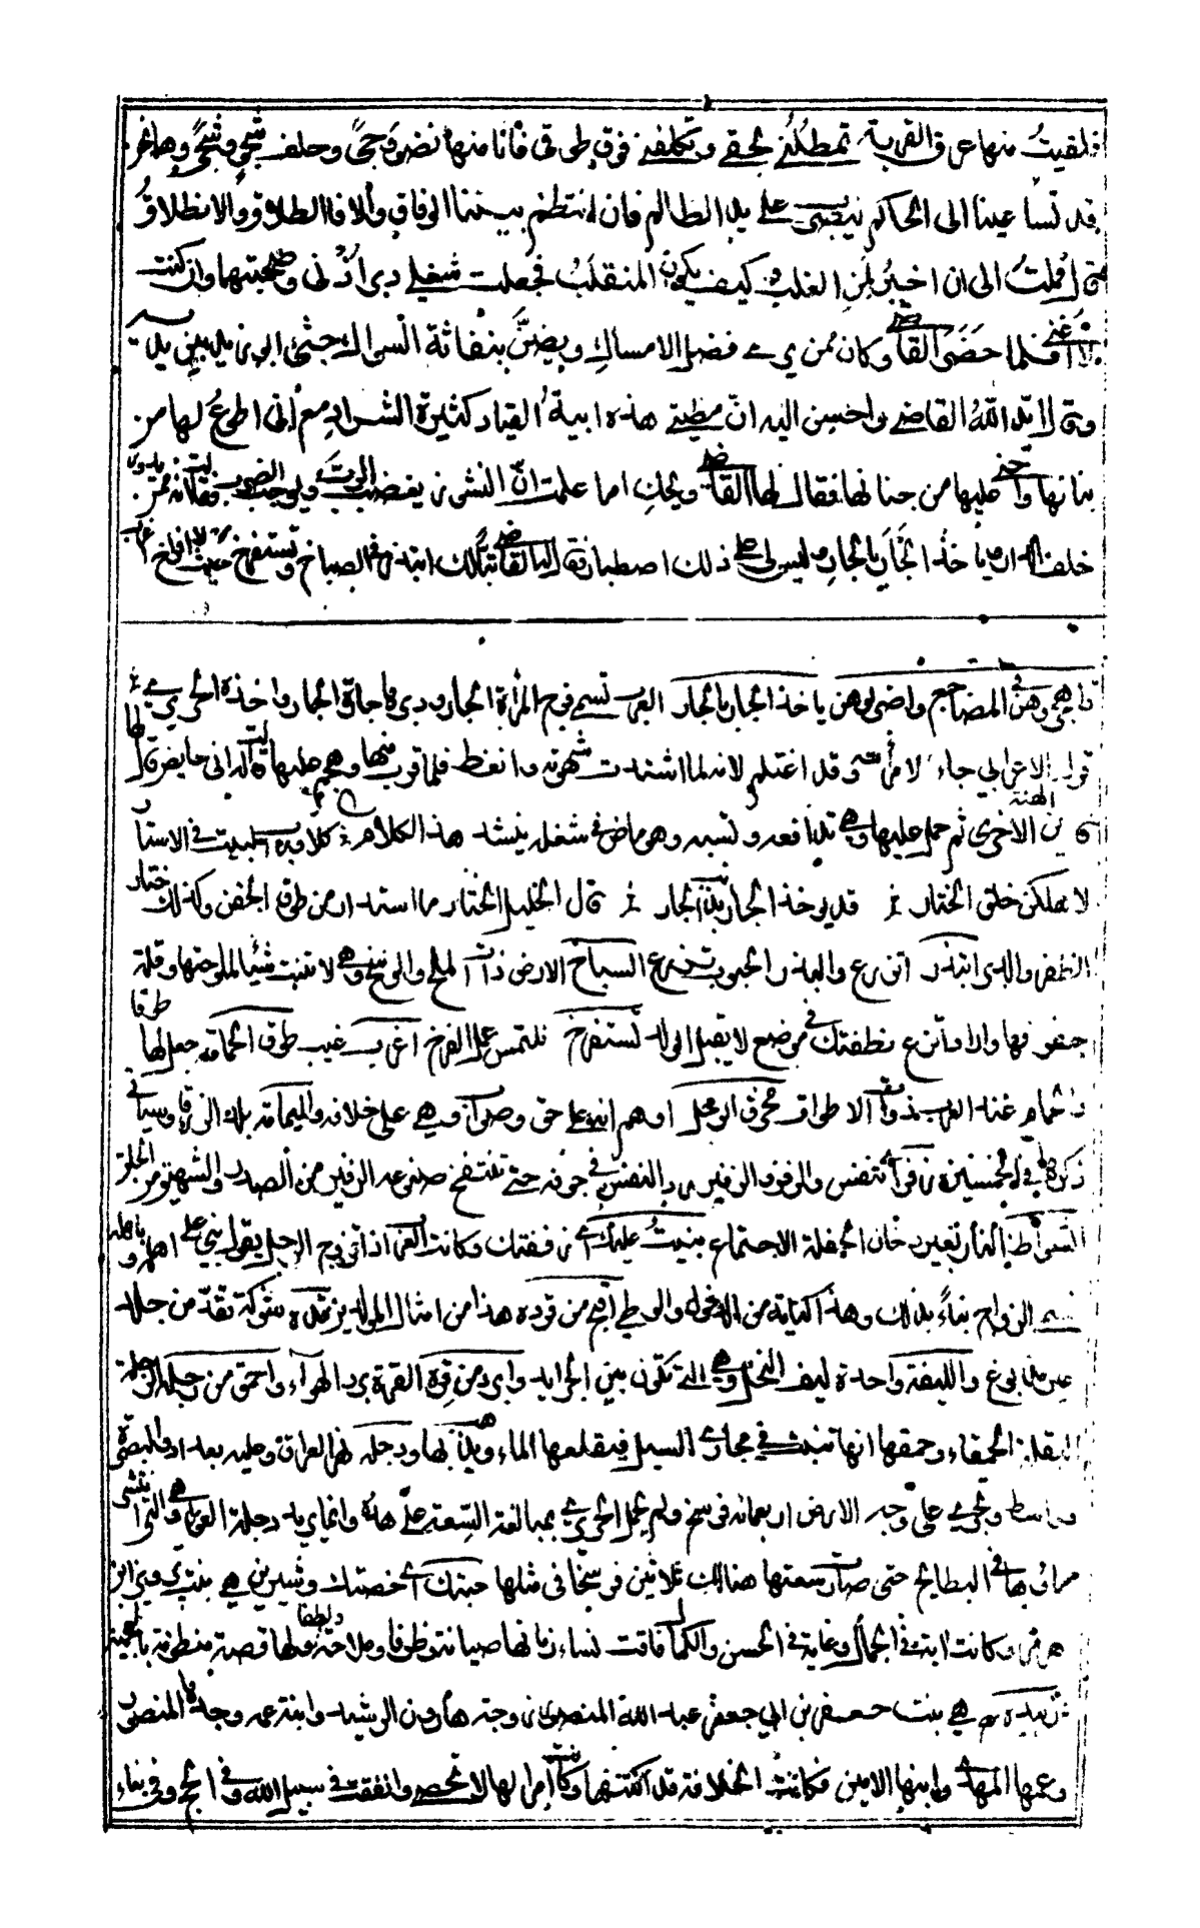 فلقيت منها عرق القربة تمطلني بحقي وتكلفني فوق طوقي فأنا منها نضو وجى وحلف شجو وشجى وها نحن
قد تساعينا الى الحاكم ليضرب على يد الظالم فان انتظم بيننا الوفاق والا فالطلاق والانطلاق
قال فملت الى ان اخبر لمن الغلب وكيف يكون المنقلب فجعلت شغلي دبر أذني وصحبتهما وان كنت
لا أغني فلما حضر القاضي وكان ممن يرى فضل الامساك ويضن بنفاثة السواك جثى ابو زيد بين يديه
وقال له ايد الله القاضي واحسن اليه ان مطيتي هذه ابية القياد كثيرة الشراد مع أني اطوع لها من
بنانها وأحنى عليها من جنانها فقال لها القاضي ويحك اما علمت ان النشوز يغضب الرب ويوجب الضرب فقالت انه ممن يدور
خلف الدار ويأخذ الجار بالجار وليس لي على ذلك اصطبار فقال له القاضي تبا لك اتبذر في السباخ وتستفرخ حيث لا افراخ اعزب
واهجروهن في المضاجع واضربوهن يأخذ الجار بالجار العرب تسمي فرج المرأة الجار ودبرها جارة الجار واخذه الحريري من
قول الاعرابي جاء لامرأته وقد اغتلم لانه لما اشتدت شهوته وانعظ فلما قرب منها وهجم عليها قالت له اني حايض قال لها
فاين الهنة الاخرى ثم حمل عليها وهي تدافعه وتسبه وهو ماض في شغله ينشد هذا الكلام كلا ورب البيت ذي الاستار
لاهتكن حلق الختار قد يوخذ الجار بذنب الجار قال الخليل الختار ما استدار من طوق الجفن وكذلك ختار
الظفر والدبر اتبذر اتزرع والبذر الحبوب تزرع السباخ الارض ذات الملح والنز وهي لا تنبت شيأ لملوحتها وقلة
جفوفها والا فأتزرع نطفتك في موضع لا يقبل الولد تستفرخ تلتمس عمل الفرخ اعزب غيب طوق الحمامة جعل لها طوقا
والحمام عند العرب ذوات الاطواق مخرق ابو محمد اوهم انه على حق وصدق وهي على خلافه واليمامة بلد الزرقا وسياتي
ذكرها في الخمسين زفر أي تنفس والزفر والزفير رد النفس في جوفه حتى تنتفخ ضلوعه الزفير من الصدر والشهيق من الحلق
الشواظ النار بغير دخان الجفلة الاجتماع بنيت عليك أي زففتك وكانت العرب اذا تزوج الرجل يقول بني على اهله وباهله
فسمي الزواج بناء بذلك وهذا كناية من الدخول والوطي اقبح من قردة هذا من امثال المولدين قدة شوكة تقد من جلد
غير مدبوغ والليفة واحدة ليف النخل وهي التي تكون بين الجرايد وابرد من قرة القرة برد الهواء واحمق من رجلة الرجلة
البقلة الحمقاء وحمقها انها تنبت في مجاري السيل فيقلعها الماء ويذهب بها ودجلة نهر العراق وعليه بغداد والبصرة
وواسط وتجري على وجه الارض اربعماية فرسخ ولم يحمل الحريري بمبالغة السعة على هذا وانما يريد دجلة العوراء وهي التي انتشر
ماؤها في البطايح حتى صارت سعتها هنالك ثلاثين فرسخا في مثلها حبتك أي خصتك وشيرين هي بنت
هرمز وكانت آية في الجمال وغاية في الحسن والكمال فاقت نساء زمانها صيانة وظرفا وملاحة ولطفا ولها قصة منظومة بالعجمية
زبيدة هي بنت جعفر بن ابي جعفر عبد الله المنصور زوجة هارون الرشيد وابنة عمه وجدها المنصور
وعمها المهدي وابنها الامين فكانت الخلافة قد اكتنفتها وكانت اموالها لا تحصى وانفقت في سبيل الله وفي الحج وفي بناء